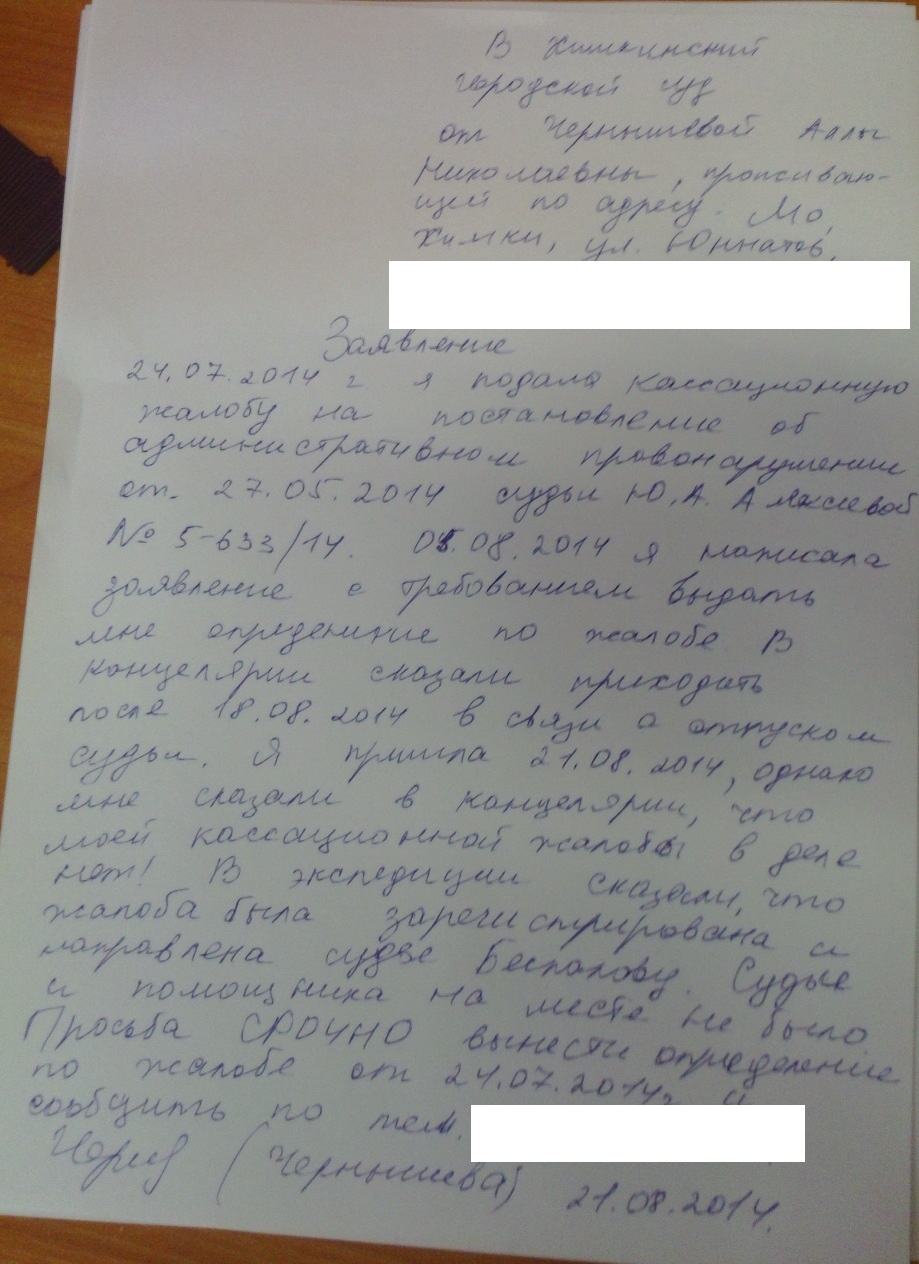 В Химкинский
городской суд
от Чернышевой Аллы
Николаевны, проживаю-
щей по адресу: МО,
Химки, ул. Юннатов,
Заявление
24.07.2014 г я подала кассационную
жалобу на постановление об
административном правонарушении
от. 27.05.2014 судьи Ю.А. Алексеевой
№ 5-633/14. 05.08.2014 я написала
заявление с требованием выдать
мне определение по жалобе В
канцелярии сказали приходить
после 18.08.2014 в связи с отпуском
судьи. Я пришла 21.08.2014, однако
мне сказали в канцелярии, что
моей кассационной жалобы в деле
нет! В экспедиции сказали, что
жалоба была зарегистрирована и
направлена судье Беспалову. Судьи
и помощника на месте не было
Просьба СРОЧНО вынести определение
по жалобе от 24.07.2014г и
сообщить по тел.
(Чернышева) 21.08.2014.